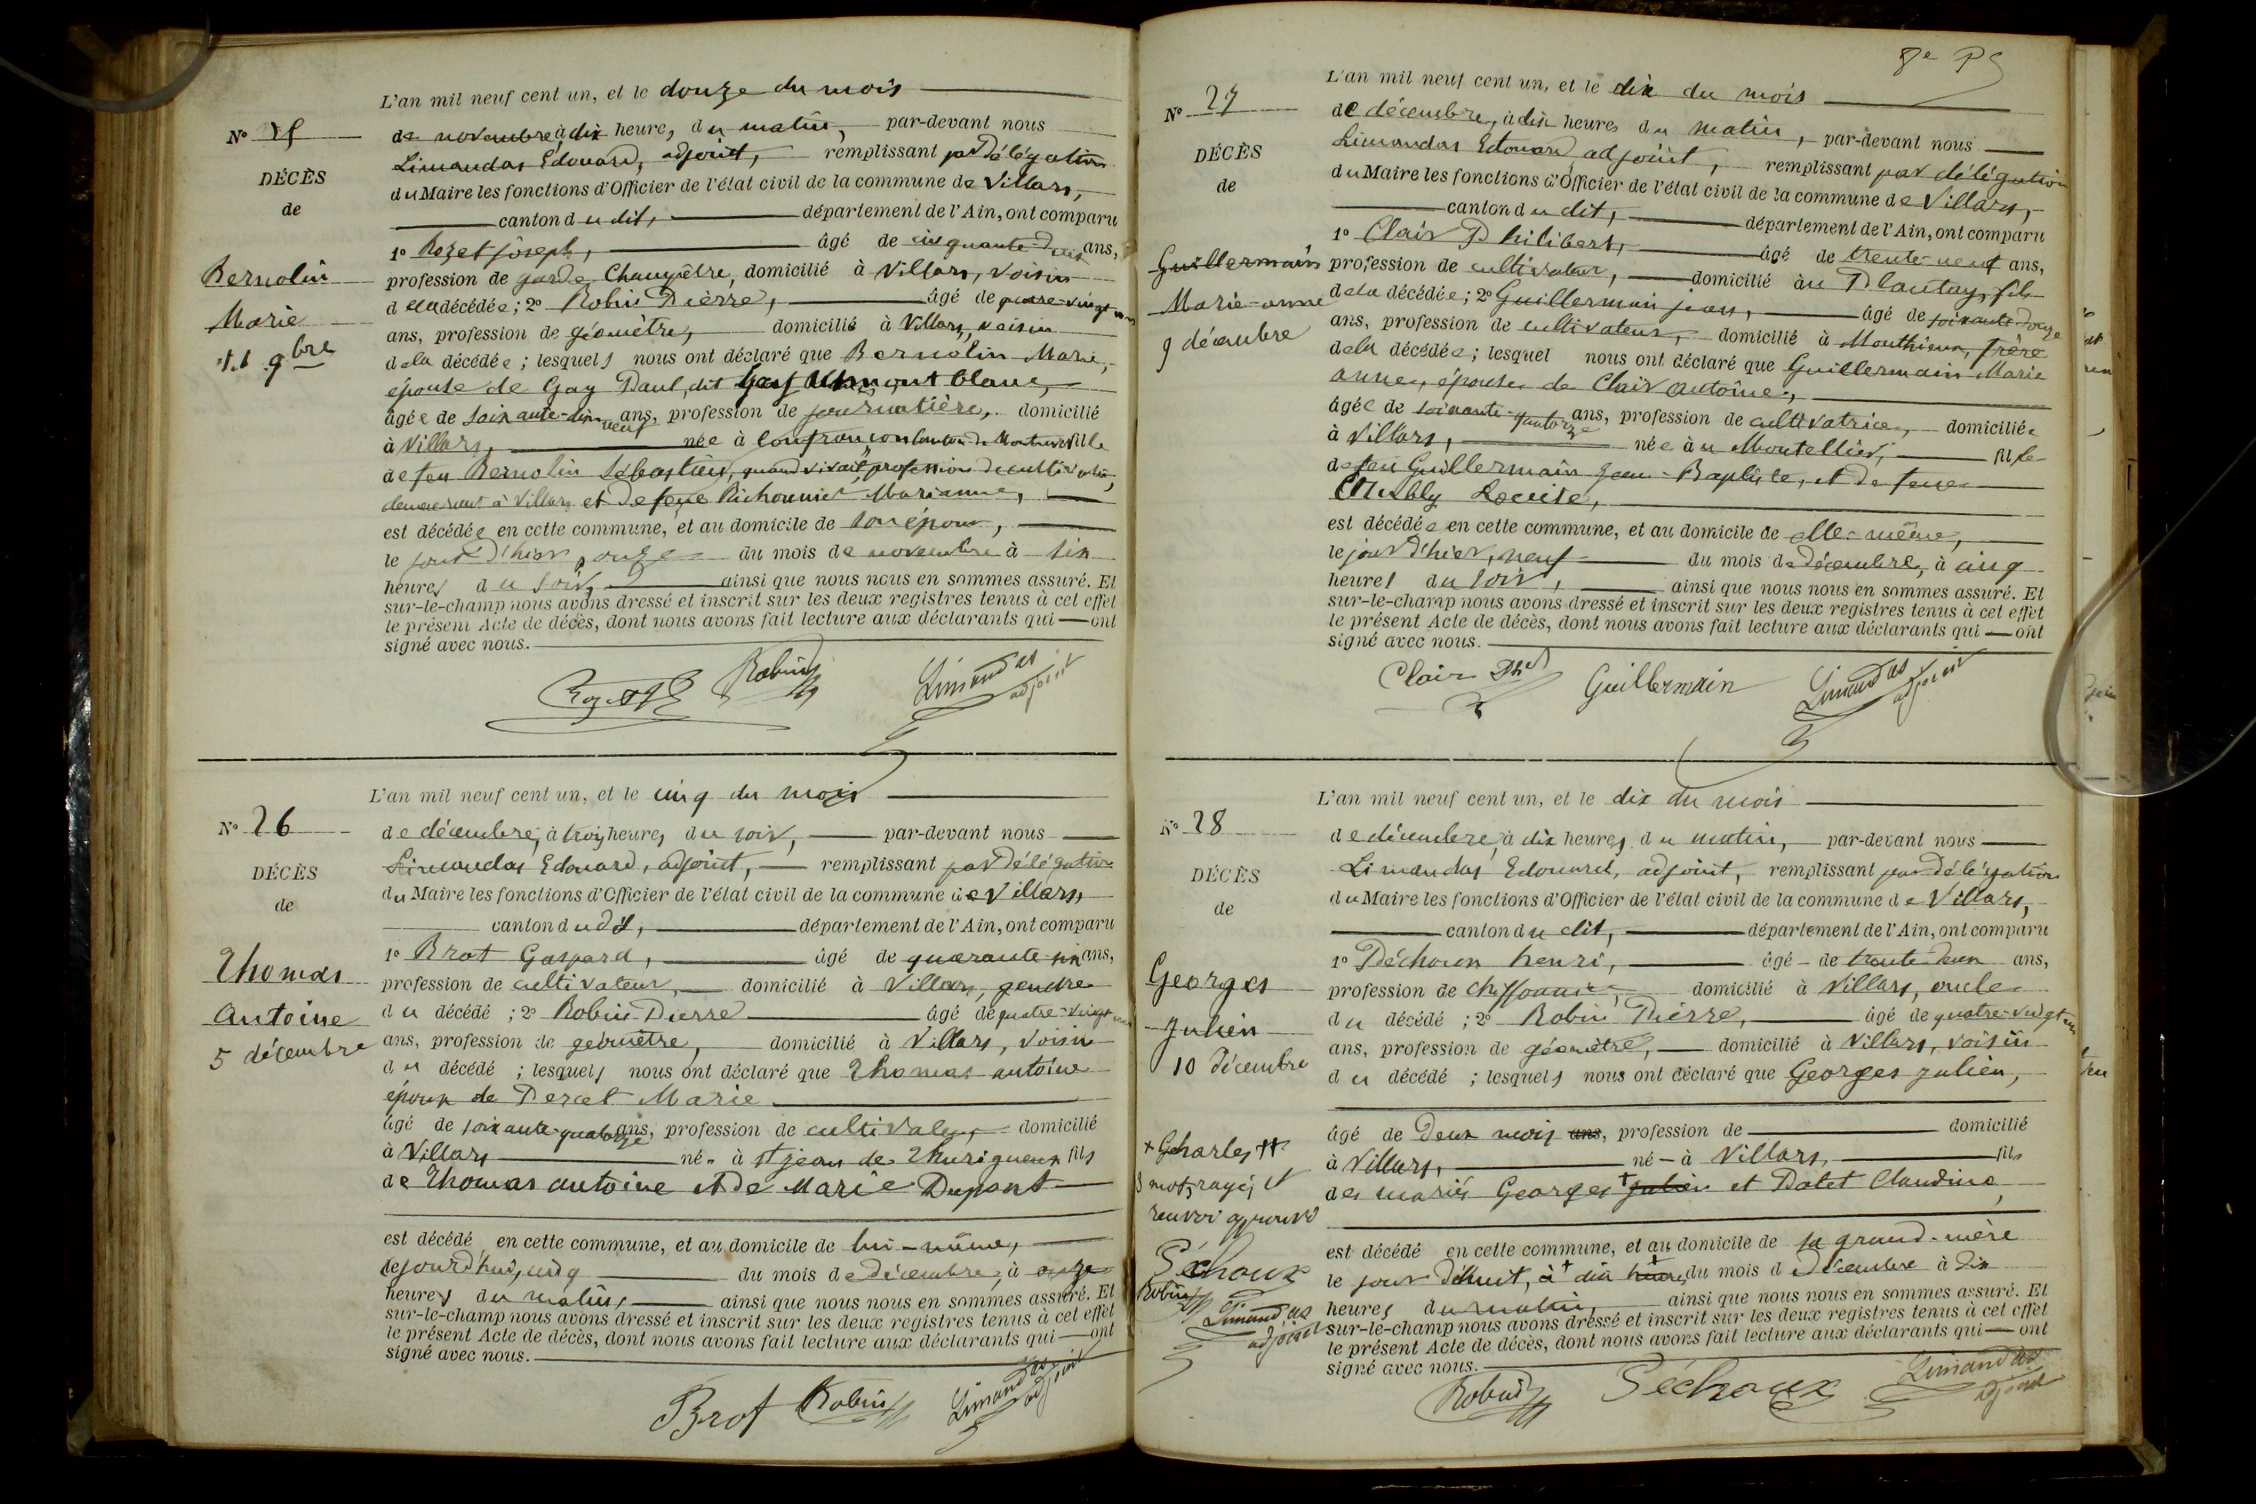 L'an mil neuf cent un, et le douze du mois
N°
DÉCÈS
de
Bernolin
Marie
11 9bre
de novembre à dix heures du matin, par-devant nous
Limandas Édouard, adjoint, remplissant par délégation
du Maire les fonctions d'Officier de l'état civil de la commune de Villars,
canton du dit, département de l'Ain, ont comparu
1° Rozet Joseph, âgé de cinquante-deux ans,
profession de garde Champêtre, domicilié à Villars, voisin
de la décédée; 2° Robin Pierre, âgé de quatre-vingt un
ans, profession de géomètre, domicilié à Villars, voisin
de la décédée; lesquels nous ont déclaré que Bernolin Marie,
épouse de Gay Paul, dit mont blanc,
âgée de soixante-dix neuf ans, profession de journalière, domicilié
à Villars, née à Confrançon canton de Montrevel fille
de feu Bernolin Sébastien, quand vivait, profession de cultivateur,
demeurant à Villars et de feue Richonnier Marianne,
est décédée en cette commune, et au domicile de son époux,
le jour d'hier, onze du mois de novembre à six
heures du soir, ainsi que nous nous en sommes assuré. Et
sur-le-champ nous avons dressé et inscrit sur les deux registres tenus à cet effet
le présent Acte de décès, dont nous avons fait lecture aux déclarants qui — ont
signé avec nous.
Rozet Robin Limandas adjoint
L'an mil neuf cent un, et le cinq du mois
N° 26
DÉCÈS
de
Thomas
Antoine
5 décembre
de décembre, à trois heures du soir, par-devant nous
Limandas Edouard, adjoint, remplissant par délégation
du Maire les fonctions d'Officier de l'état civil de la commune de Villars,
canton du dit, département de l'Ain, ont comparu
1° Brot Gaspard, âgé de quarante six ans,
profession de cultivateur, domicilié à Villars, gendre
du décédé; 2° Robin Pierre âgé de quatre-vingt un
ans, profession de géomètre, domicilié à Villars, voisin
du décédé; lesquels nous ont déclaré que Thomas antoine
époux de Percet Marie
âgé de soixante-quatorze ans, profession de cultivateur, domicilié
à Villars né à St jean de Thurigneux fils
de Thomas antoine et de Marie Dupont
est décédé en cette commune, et au domicile de lui-même,
le jourd'hui, cinq du mois de décembre, à onze
heures du matin, ainsi que nous nous en sommes assuré. Et
sur-le-champ nous avons dressé et inscrit sur les deux registres tenus à cet effet
le présent Acte de décès, dont nous avons fait lecture aux déclarants qui — ont
signé avec nous.
Brot Robin Limandas adjoint
L'an mil neuf cent un, et le dix du mois
N° 27
DÉCÈS
de
Guillermain
Marie-anne
9 décembre
de décembre, à dix heures du matin, par-devant nous
Limandas Edouard adjoint, remplissant par délégation
du Maire les fonctions d'Officier de l'état civil de la commune de Villars,
canton du dit, département de l'Ain, ont comparu
1° Clair Philibert, âgé de trente-neuf ans,
profession de cultivateur, domicilié au Plantay, fils
de la décédée; 2° Guillermain jean, âgé de soixante-douze
ans, profession de cultivateur, domicilié à Monthieux, frère
de la décédée; lesquel nous ont déclaré que Guillermain Marie
anne, épouse de Clair antoine,
âgée de soixante-quatorze ans, profession de cultivatrice, domiciliée
à Villars, née au Montellier, fille
de feu Guillermain Jean-Baptiste, et de feue
Louise,
est décédée en cette commune, et au domicile de elle-même,
le jour d'hier, neuf du mois de décembre, à cinq
heures du soir, ainsi que nous nous en sommes assuré. Et
sur-le-champ nous avons dressé et inscrit sur les deux registres tenus à cet effet
le présent Acte de décès, dont nous avons fait lecture aux déclarants qui — ont
signé avec nous.
Clair Phd Guillermain Limandas adjoint
L'an mil neuf cent un, et le dix du mois
N° 28
DÉCÈS
de
Georges
Julien
10 décembre
+ Charles ++
3 mots rayés et
renvoi approuvé
Péchoux
Robin
Limandas
adjoint
de décembre, à dix heures du matin, par-devant nous
Limandas Edouard, adjoint, remplissant par délégation
du Maire les fonctions d'Officier de l'état civil de la commune de Villars,
canton du dit, département de l'Ain, ont comparu
1° Péchoux henri, âgé de trente-deux ans,
profession de chiffonnier, domicilié à Villars, oncle
du décédé; 2° Robin Pierre, âgé de quatre-vingt un
ans, profession de géomètre, domicilié à Villars, voisin
du décédé; lesquels nous ont déclaré que Georges julien,
âgé de deux mois ans, profession de domicilié
à Villars, né à Villars, fils
des mariés Georges + Julien et Patet Claudine,
est décédé en cette commune, et au domicile de sa grand-mère
le jour d'huit, à + dix heures du mois de décembre à dix
heures du matin, ainsi que nous nous en sommes assuré. Et
sur-le-champ nous avons dressé et inscrit sur les deux registres tenus à cet effet
le présent Acte de décès, dont nous avons fait lecture aux déclarants qui — ont
signé avec nous.
Robin Péchoux Limandas adjoint